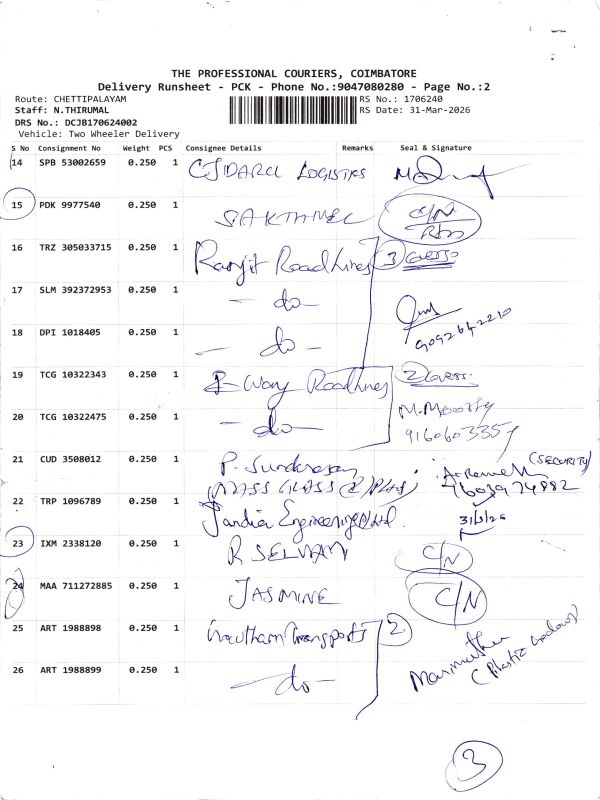 THE PROFESSIONAL COURIERS, COIMBATORE
Delivery Runsheet - PCK - Phone No.:9047080280 - Page No.:2
Route: CHETTIPALAYAM
Staff: N.THIRUMAL
DRS No.: DCJB170624002
Vehicle: Two Wheeler Delivery
RS No.: 1706240
RS Date: 31-Mar-2026
S No Consignment No Weight PCS Consignee Details Remarks Seal & Signature
14 SPB 53002659 0.250 1 CJDARCL LOGISTKS
15 PDK 9977540 0.250 1 SAKTHIVEL C/N
16 TRZ 305033715 0.250 1 Ranjit Roadlines 3 Covers
17 SLM 392372953 0.250 1 - do -
9092642210
18 DPI 1018405 0.250 1 - do -
19 TCG 10322343 0.250 1 Way Roadlines 2 Covers.
20 TCG 10322475 0.250 1 - do - M. Moorthy
21 CUD 3508012 0.250 1 P. Sundaresan (SECURITY)
(MASS GLASS (I) P Ltd)
22 TRP 1096789 0.250 1 Jandia Engineering P Ltd. 31/3/26
23 IXM 2338120 0.250 1 R SELVAM C/N
24 MAA 711272885 0.250 1 JASMINE C/N
25 ART 1988898 0.250 1 Gowtham Transports 2
26 ART 1988899 0.250 1 - do - Marimuthu
3